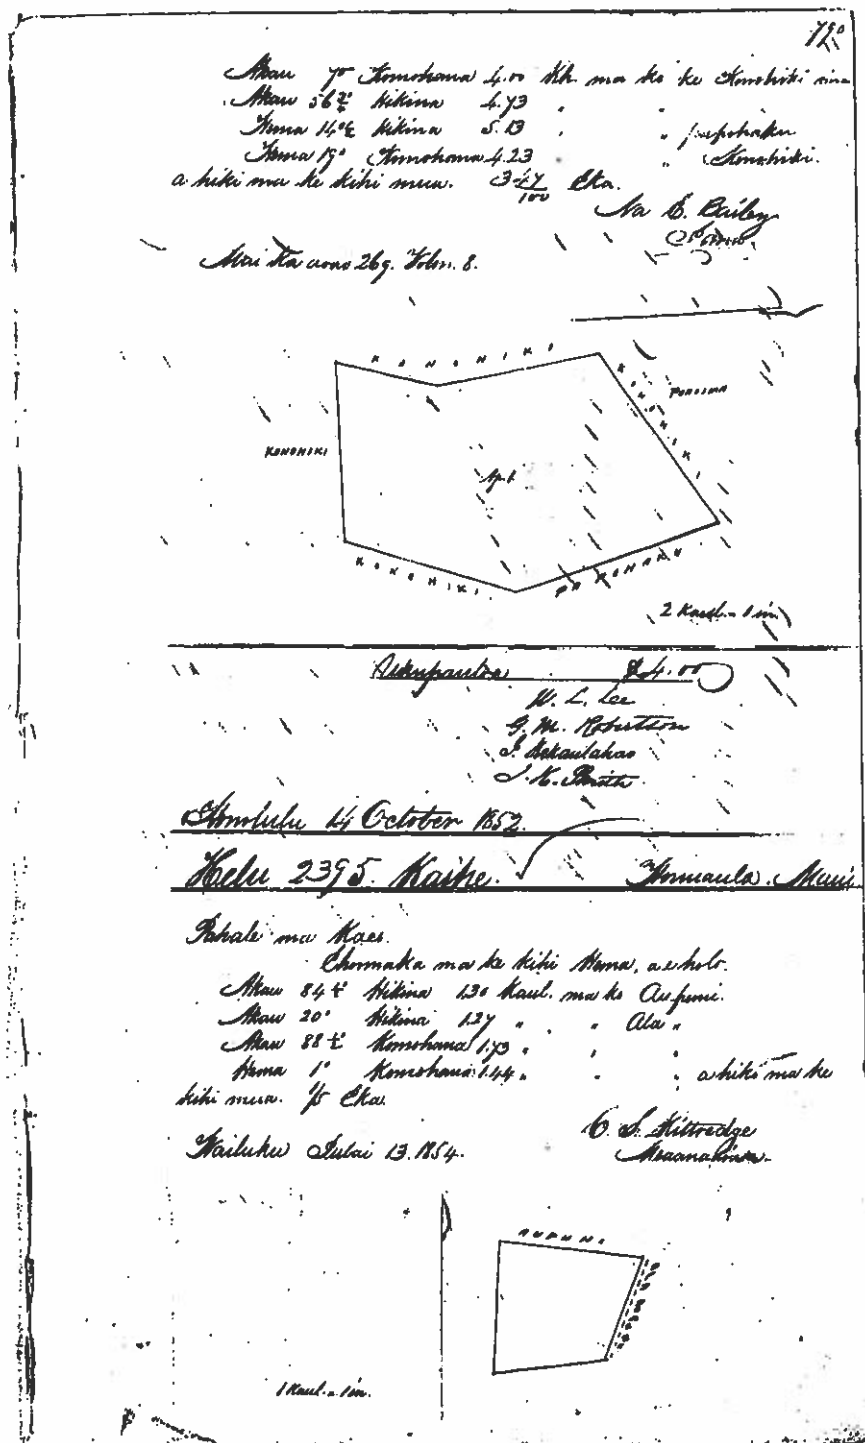 Akau 7° Komohana 4.00 Kh. ma ko ke Konohiki aina
Akau 56¾° Hikina 4.73 " "
Hema 14°½ Hikina 5.13 " " papohaku
Hema 19° Komohana 4.23 " Konohiki.
a hiki ma ke kihi mua. 3 47/100 Eka.
Na E. Bailey
Mai ka aoao 269. Volm. 8.
KONOHIKI
KONOHIKI
KONOHIKI
Ap. 1.
KONOHIKI
PA POHAKU
2 Kaul. = 1 in.
$4.00
W. L. Lee
G. M. Robertson
J. Kekaulahao
J. H. Smith
Honolulu 14 October 1852.
Helu 2395. Kaihe. Honuaula. Maui
Pahale ma Kaeo.
Ehoomaka ma ke kihi Hema, a e holo.
Akau 84½° Hikina 1.30 Kaul. ma ko Aupuni.
Akau 20° Hikina 1.27 " " Ala "
Akau 88½ Komohana 1.73 " " "
Hema 1° Komohana 1.44 " " " a hiki ma ke
kihi mua. 1/5 Eka.
C. S. Kittredge
Wailuku Iulai 13. 1854.
Meaanaaina.
AUPUNI
1 Kaul. = 1 in.